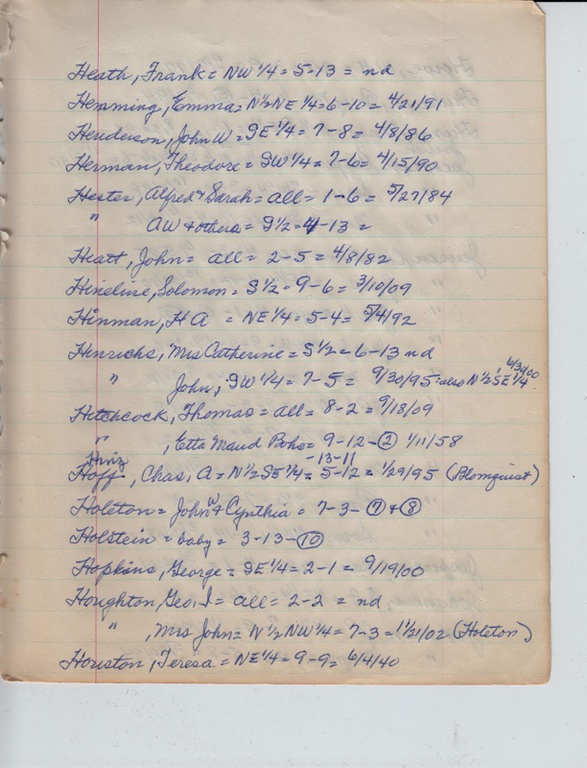 Heath, Frank = NW 1/4 = 5-13 = nd
Hemming, Emma = N 1/2 NE 1/4 = 6-10 = 4/21/91
Henderson, John W = SE 1/4 = 7-8 = 4/8/86
Herman, Theodore = SW 1/4 = 7-6 = 4/15/90
Hester, Alfred & Sarah = all = 1-6 = 5/27/84
" AW & others = S 1/2 = 4-13 =
Hiatt, John = all = 2-5 = 4/8/82
Hineline, Solomon = S 1/2 = 9-6 = 3/10/09
Hinman, H A = NE 1/4 = 5-4 = 5/4/92
Hinrichs, Mrs Catherine = S 1/2 = 6-13 nd
6/3/00
" John, SW 1/4 = 7-5 = 9/30/95 : also N 1/2 SE 1/4
Hitchcock, Thomas = all = 8-2 = 9/18/09
" , Etta Maud Boho = 9-12-② 1/11/58
Hinz -13-11
Hoff, Chas, A = N 1/2 SE 1/4 = 5-12 = 1/29/95 (Blomquist)
Holston = John W & Cynthia = 7-3- ⑦ & ⑧
Holstein = baby = 3-13-⑩
Hopkins, George = SE 1/4 = 2-1 = 9/19/00
Houghton, Geo, I = all = 2-2 = nd
" , Mrs John = N 1/2 NW 1/4 = 7-3 = 11/21/02 (Holston)
Houston, Teresa = NE 1/4 = 9-9 = 6/4/40